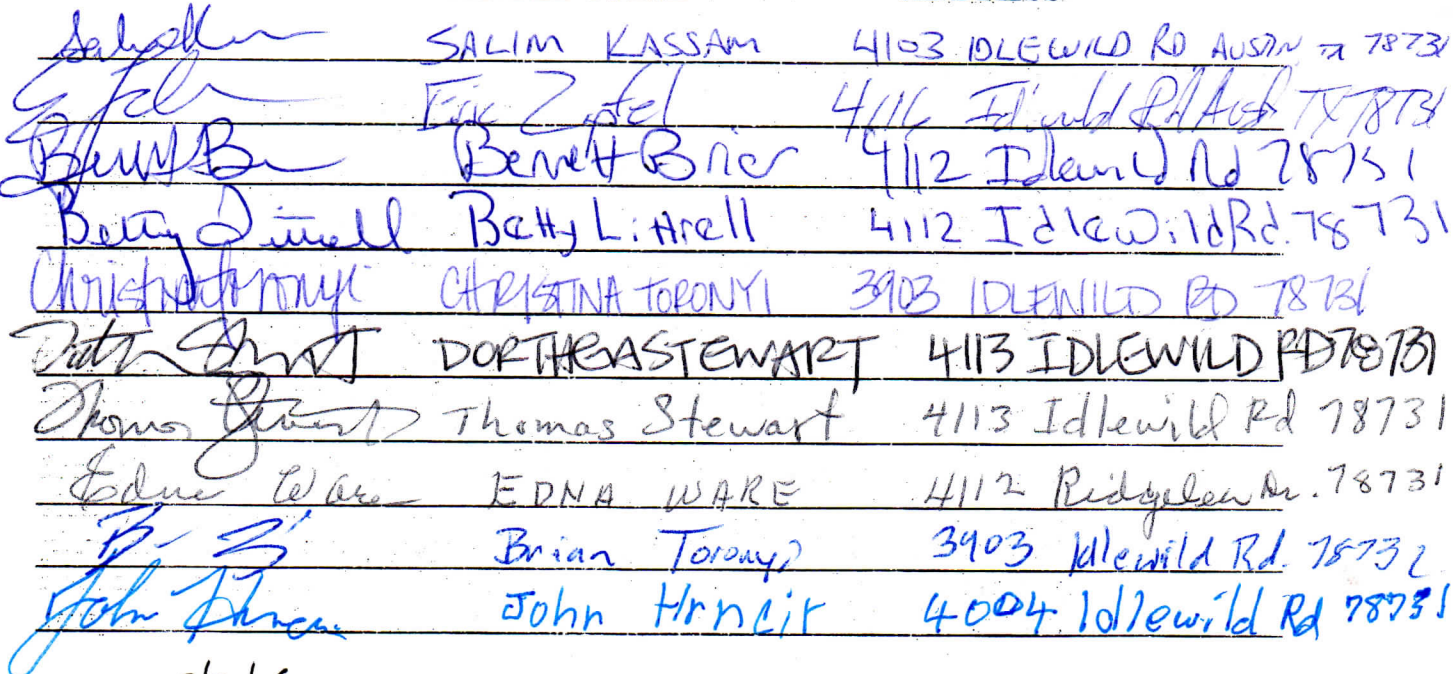 SALIM KASSAM 4103 IDLEWILD RD AUSTIN TX 78731
Eric 4116 Idlewild Rd Aust TX 78731
Bennett Brier 4112 Idlewild Rd 78731
Betty Littrell Betty Littrell 4112 Idlewild Rd. 78731
Christina Toronyi CHRISTINA TORONYI 3903 IDLEWILD RD 78731
DORTHEA STEWART 4113 IDLEWILD RD 78731
Thomas Stewart Thomas Stewart 4113 Idlewild Rd 78731
Edna Ware EDNA WARE 4112 Ridgelea Dr. 78731
Brian Toronyi 3903 Idlewild Rd. 78731
John Hrncir John Hrncir 4004 Idlewild Rd 78731